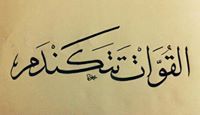 القوَّات تتكندم